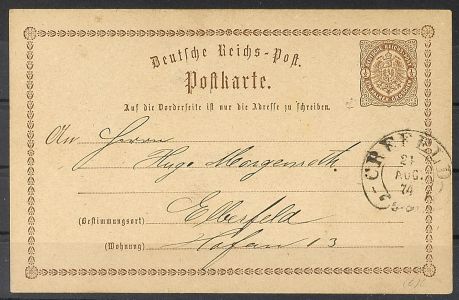 Deutsche Reichs-Post.
Postkarte.
Auf die Vorderseite ist nur die Adresse zu schreiben.
An Herrn
Hugo Morgenroth
CREFELD
21
AUG.
74
Elberfeld
(Bestimmungsort)
Hofau 13
(Wohnung)